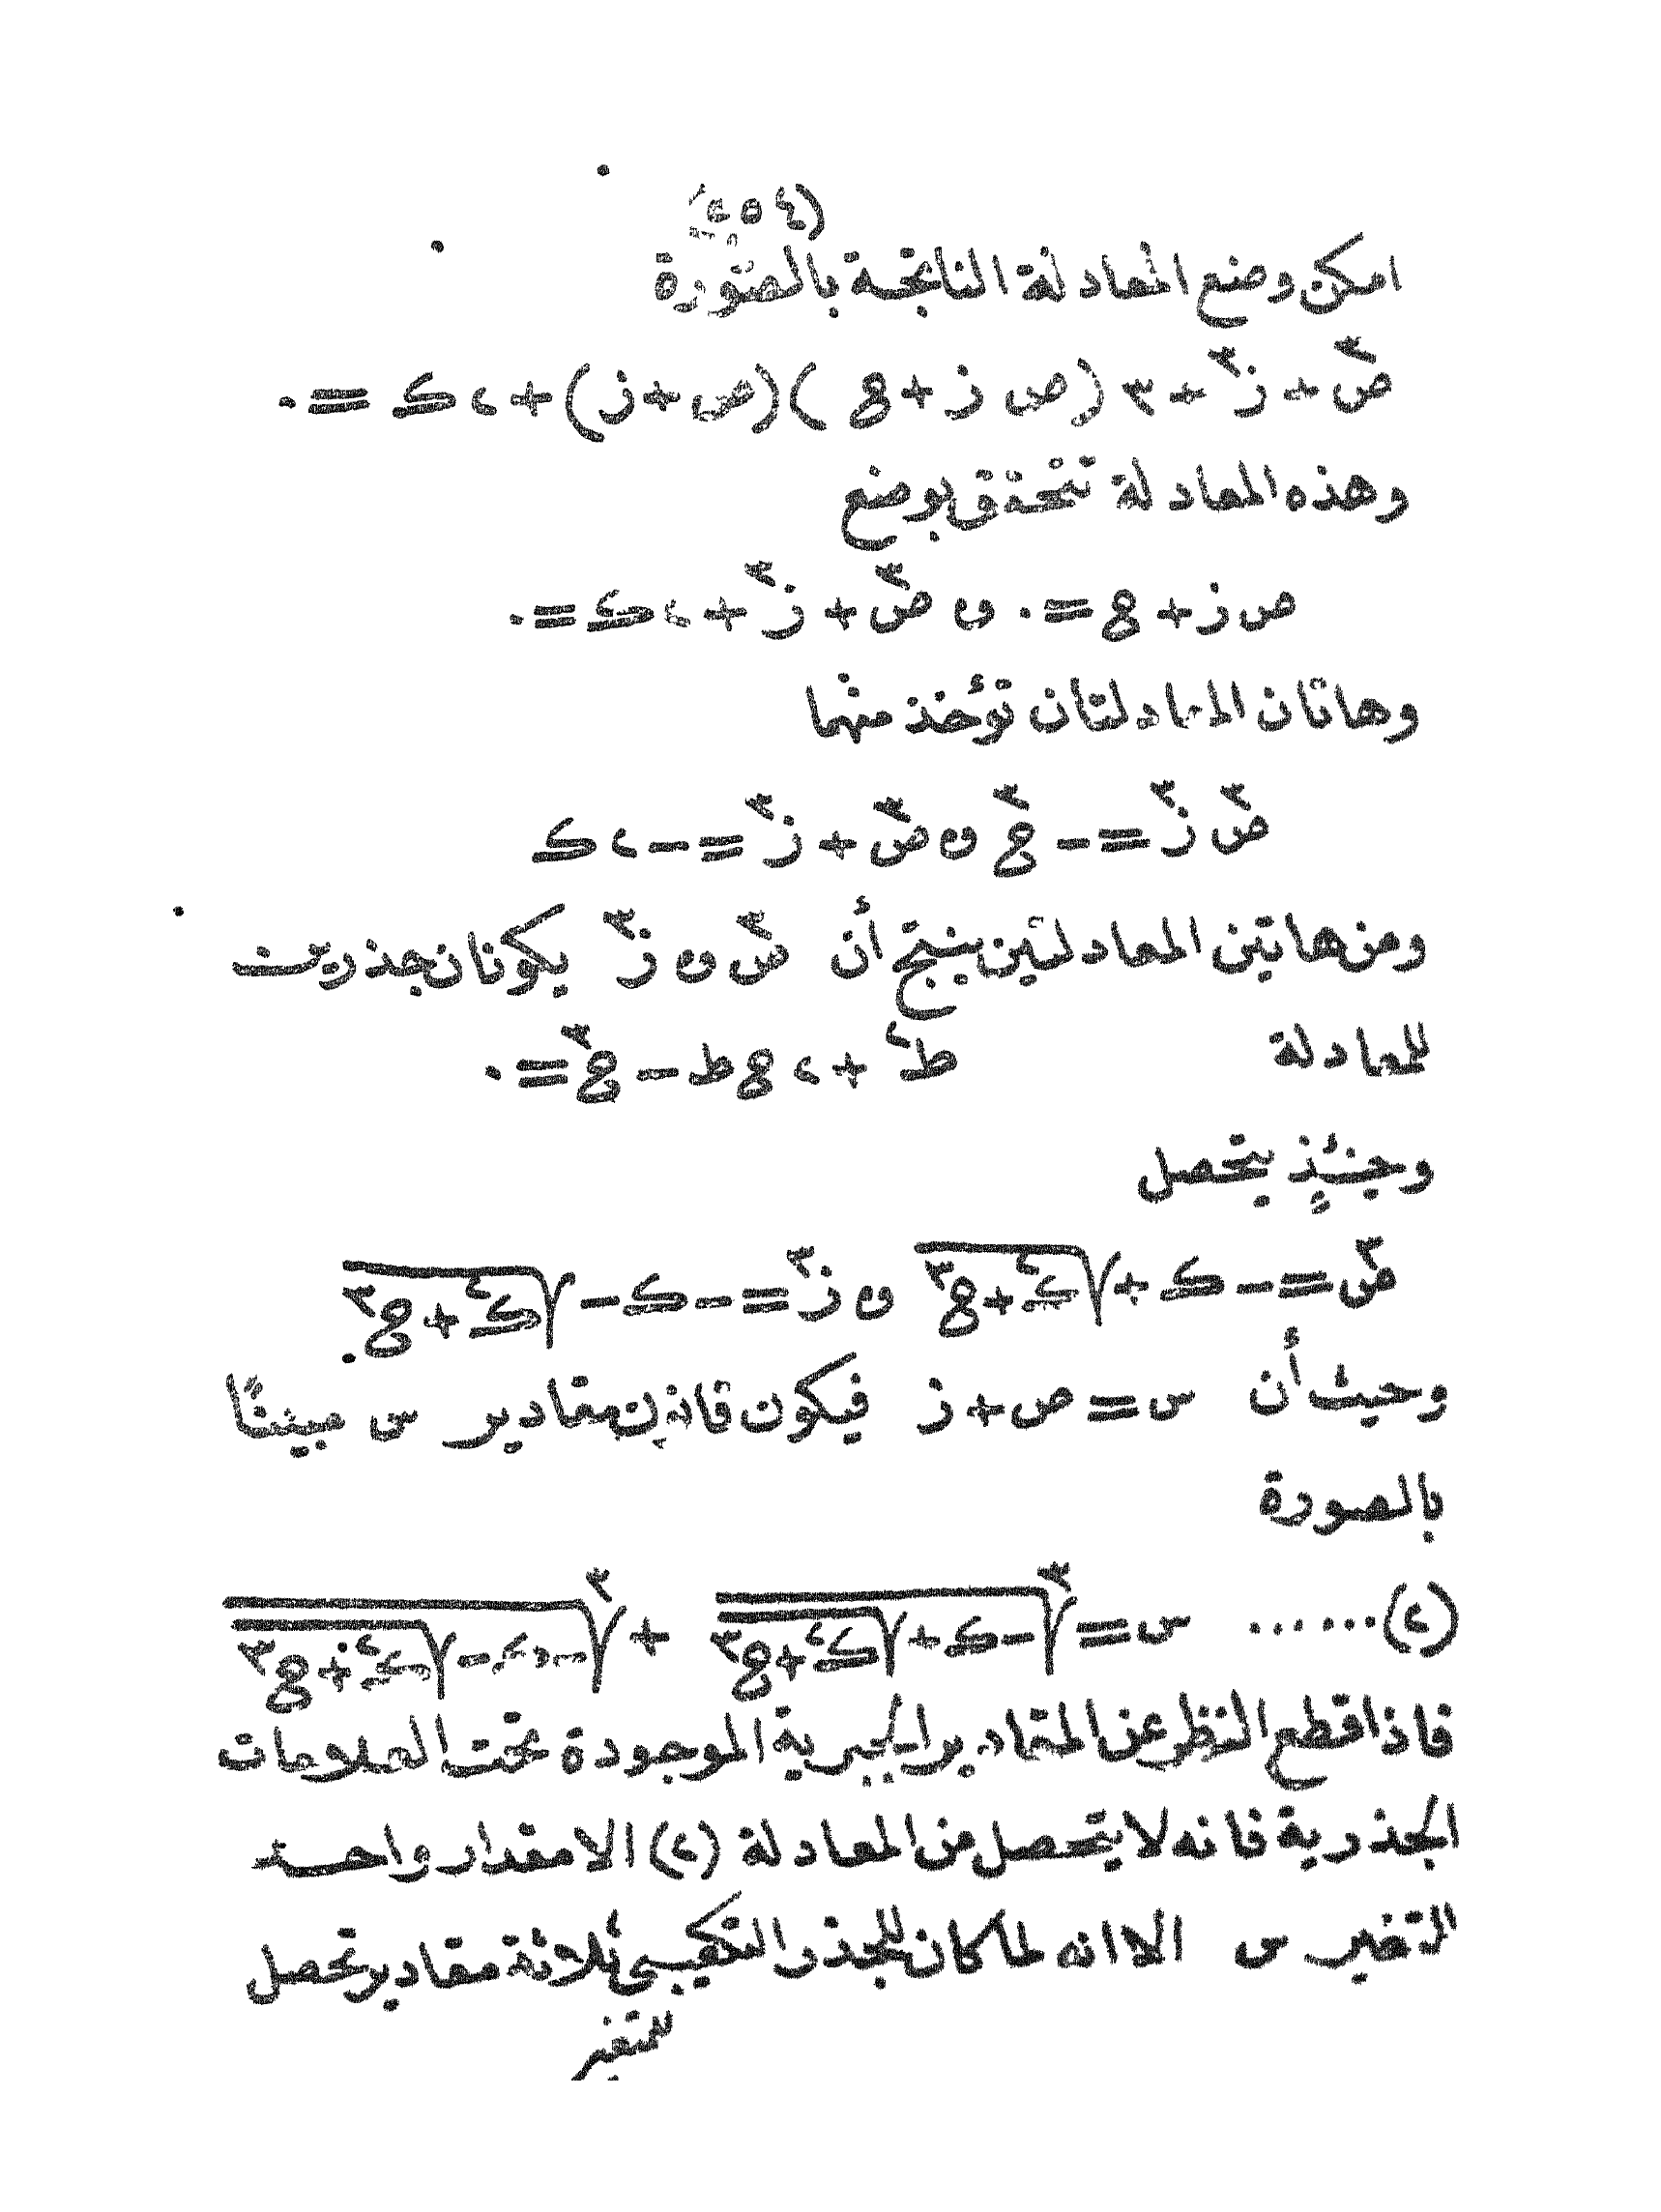 (٢٥٤)
امكن وضع المعادلة الناتجة بالصورة
ص٣ + ز٣ + ٣ (ص ز + ع) (ص + ز) + ٢ ك = ٠
وهذه المعادلة تتحقق بوضع
ص ز + ع = ٠ و ص٣ + ز٣ + ٢ ك = ٠
وهاتان المعادلتان تؤخذ منهما
ص٣ ز٣ = − ع٣ و ص٣ + ز٣ = − ٢ ك
ومن هاتين المعادلتين ينتج أن س٣ و ز٣ يكونان جذريت
للمعادلة ط٢ + ٢ ع ط − ع٣ = ٠
وحينئذٍ يتحصل
ص٣ = − ك + √(ك٢ + ع٣) و ز٣ = − ك − √(ك٢ + ع٣)
وحيث أن س = ص + ز فيكون قانون مقادير س مبينًا
بالصورة
(٢)...... س = ∛(− ك + √(ك٢ + ع٣)) + ∛(− ك − √(ك٢ + ع٣))
فاذا قطع النظر عن المقادير الجبرية الموجودة تحت العلامات
الجذرية فانه لا يتحصل من المعادلة (٢) الا مقدار واحد
للتغير س الا انه لما كان للجذر التكعيبى ثلاثة مقادير تحصل
للمتغير